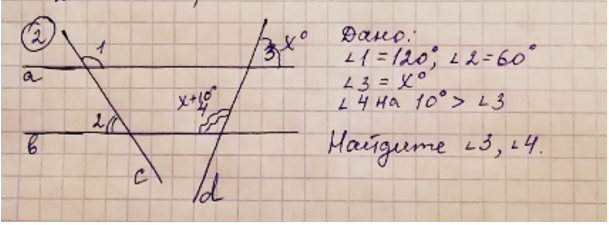 2
1
3 x°
a
x+10°
4
2
b
c
d
Дано:
∠1=120°, ∠2=60°
∠3 = x°
∠4 на 10° > ∠3
Найдите ∠3, ∠4.